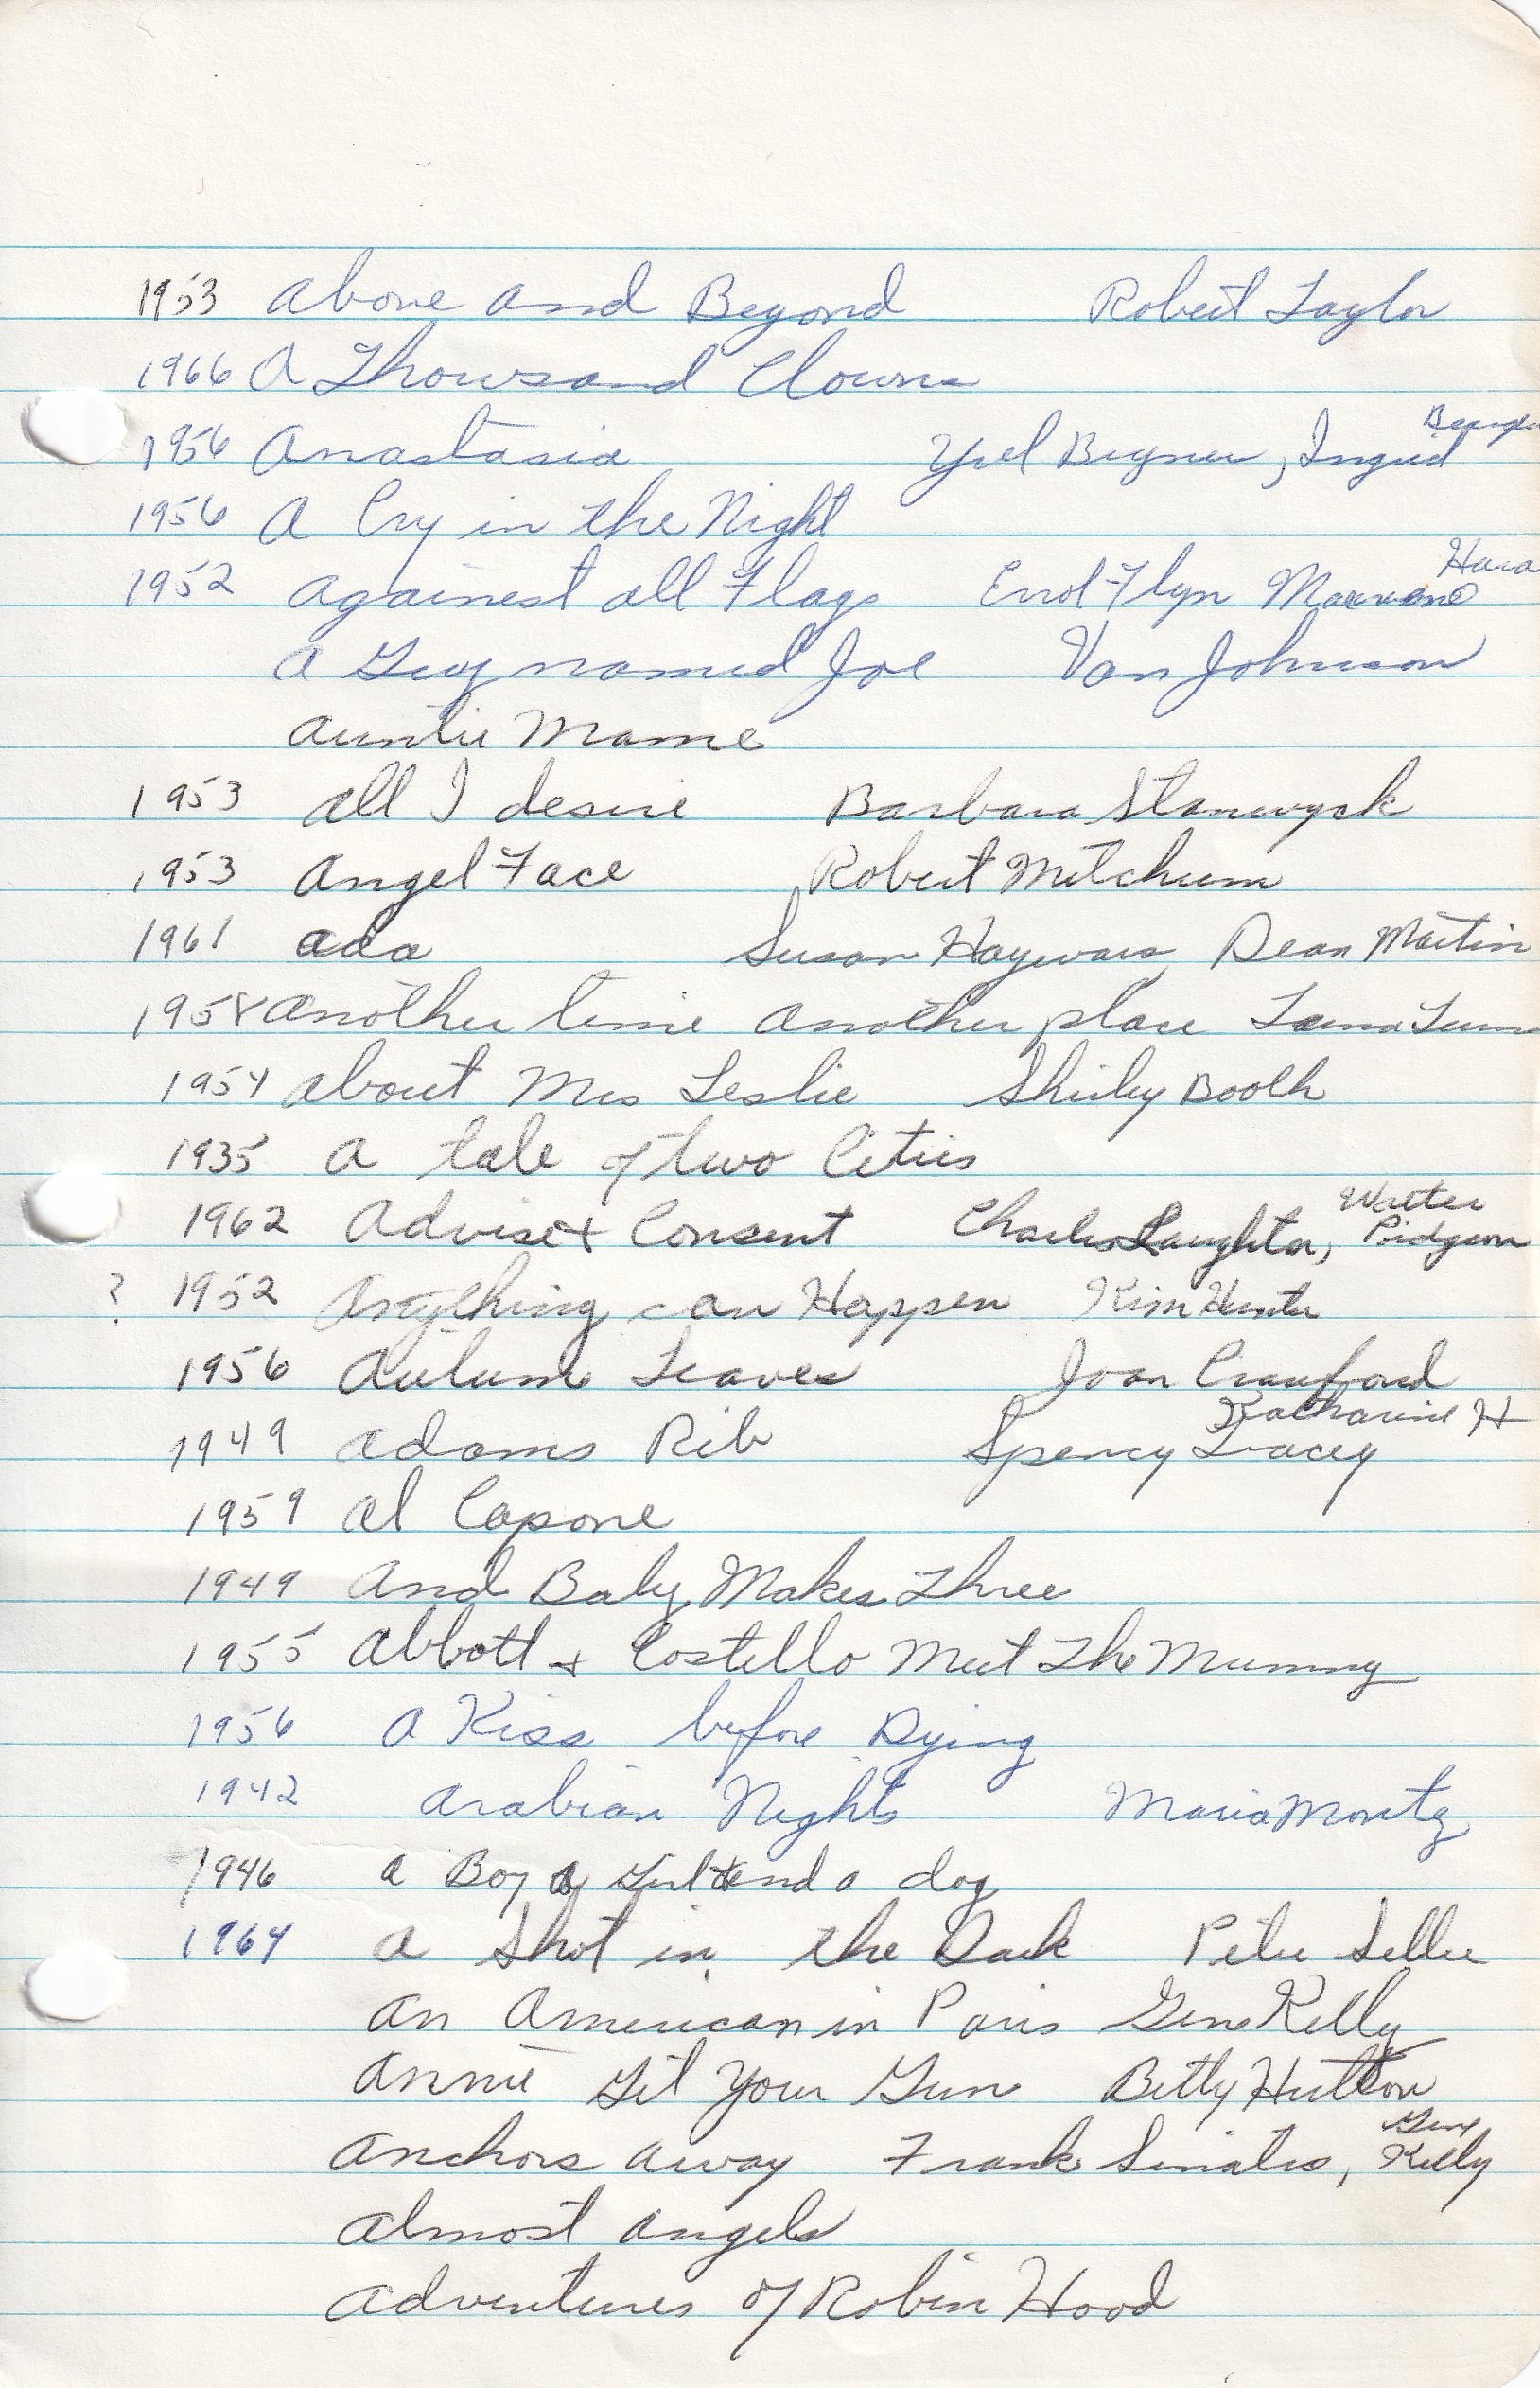 1953 Above and Beyond Robert Taylor
1966 A Thousand Clowns
1956 Anastasia Yul Brynner, Ingrid
1956 A Cry in the Night
1952 Against all Flags Errol Flyn Maureen Hara
A Guy named Joe Van Johnson
Auntie Mame
1953 All I desire Barbara Stanwyck
1953 Angel Face Robert Mitchum
1961 Ada Susan Hayward Dean Martin
1958 Another time Another place Lana Turn
1954 About Mrs Leslie Shirley Booth
1935 A tale of two Cities
1962 Advise + Consent Charles Laughton, Walter Pidgeon
? 1952 Anything can Happen Kim Hunter
1956 Autumn Leaves Joan Crawford
1949 Adams Rib Spency Tracey Katharine H
1959 Al Capone
1949 And Baby Makes Three
1955 Abbott + Costello Meet The Mummy
1956 A Kiss before Dying
1942 Arabian Nights Maria Montez
1946 A Boy a Girl and a dog
1964 A Shot in the Dark Peter Seller
An American in Paris Gene Kelly
Annie Git Your Gun Betty Hutton
Anchors away Frank Sinatra, Gene Kelly
Almost Angels
Adventures of Robin Hood